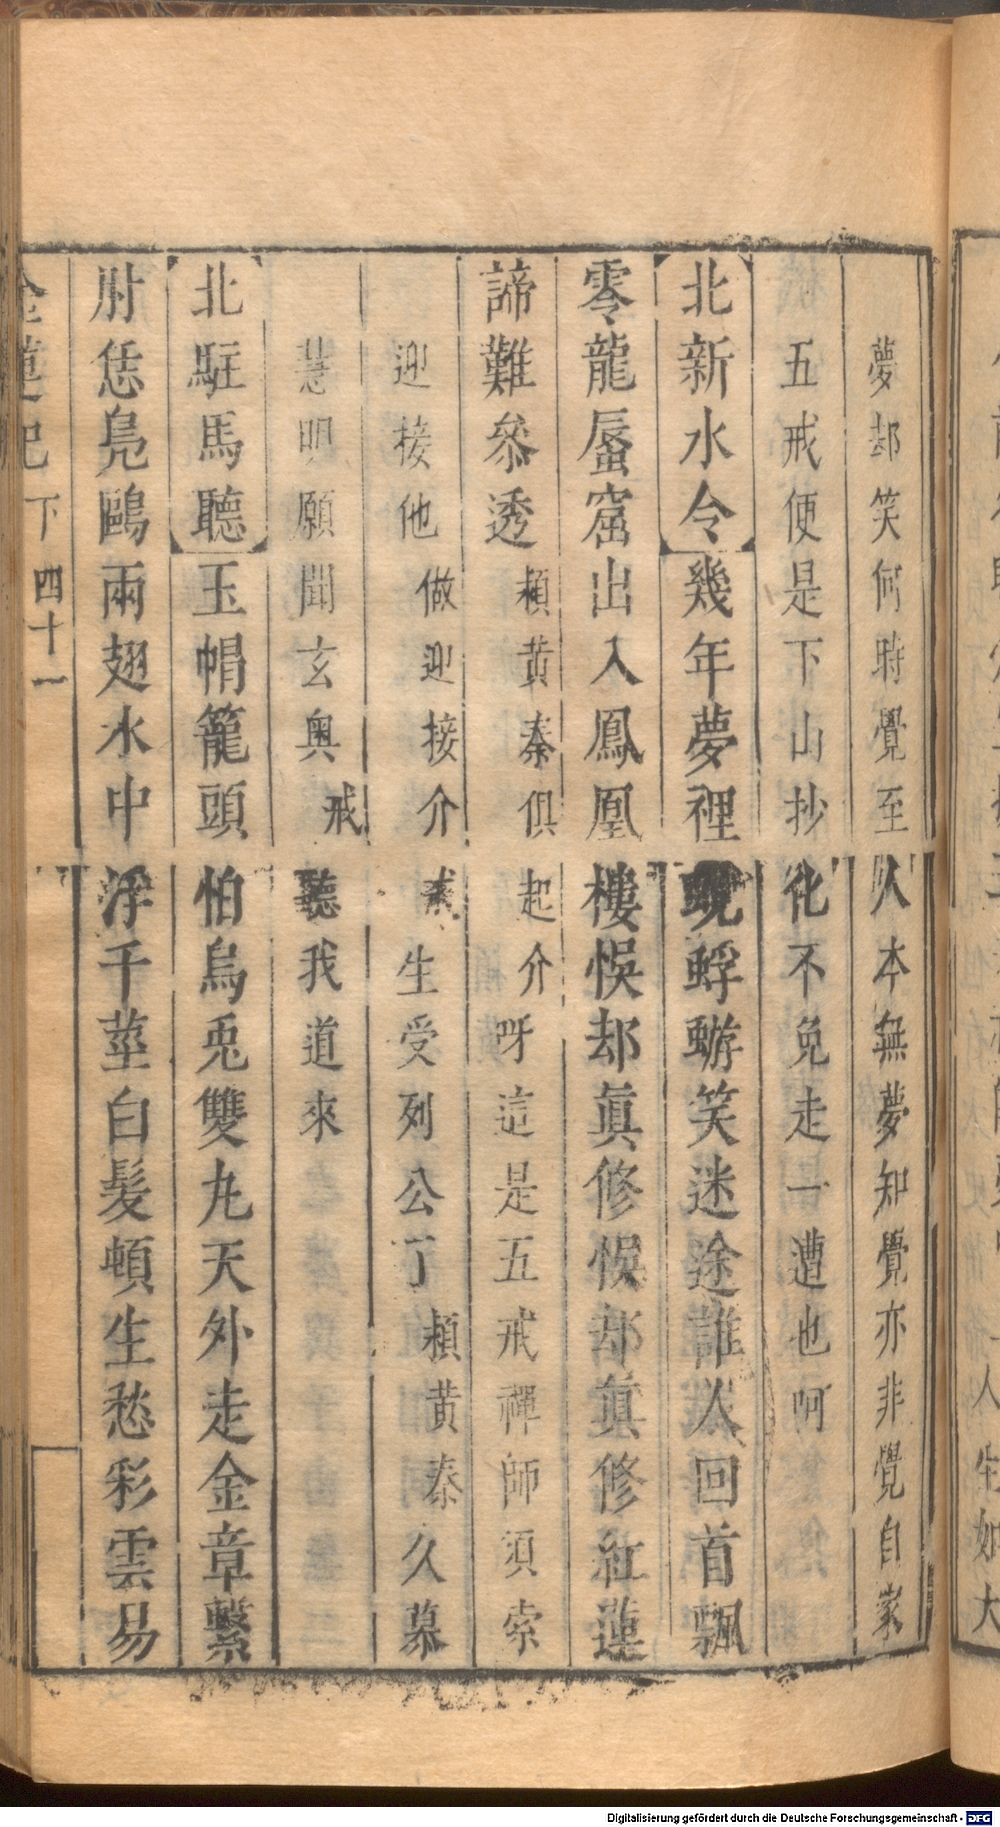 夢却笑何時覺至人本無夢知覺亦非覺自家
五戒便是下山抄化不免走一遭也呵
北新水令幾年夢裡蜉蝣笑迷途誰人回首飄
零龍蜃窟出入鳳凰樓悞却眞修悞却眞修紅蓮
諦難叅透 頳黃秦俱起介呀這是五戒禪師須索
迎接他做迎接介戒生受列公了頳黃秦久慕
慧明願聞玄奧戒聽我道來
北駐馬聽玉帽籠頭怕烏兎雙丸天外走金章繫
肘恁鳧鷗兩翅水中浮千莖白髮頓生愁彩雲易
下 四十一